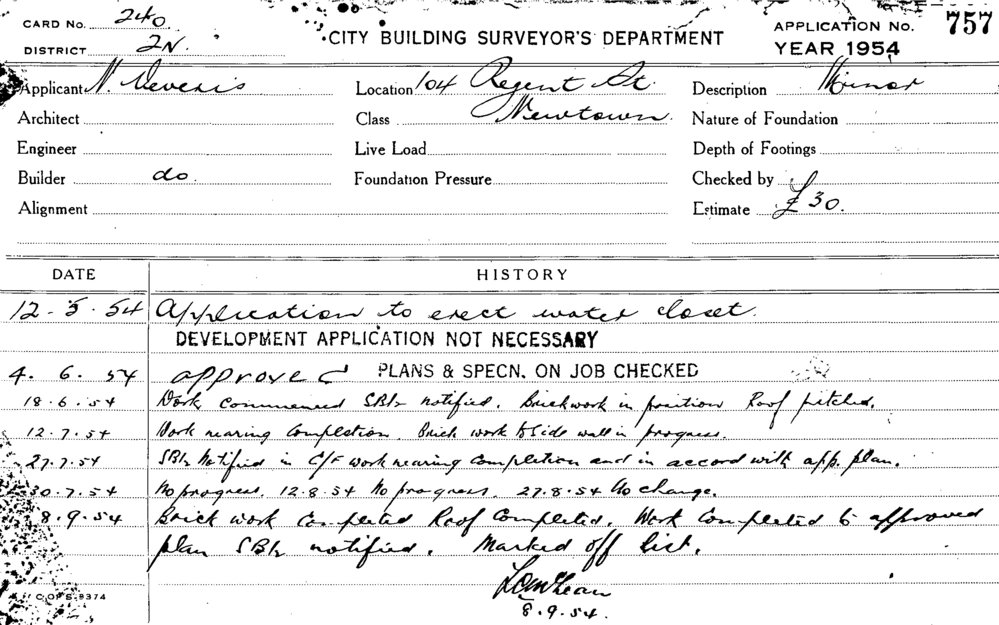 CARD No. 240
DISTRICT 2N.
CITY BUILDING SURVEYOR'S DEPARTMENT
APPLICATION No. 757
YEAR 1954
Applicant N.
Location 104 Regent St.
Description Minor
Architect
Class Newtown.
Nature of Foundation
Engineer
Live Load
Depth of Footings
Builder do
Foundation Pressure
Checked by
Alignment
Estimate £30.
DATE HISTORY
12.5.54 Application to erect water closet.
DEVELOPMENT APPLICATION NOT NECESSARY
4.6.54 approved PLANS & SPECN. ON JOB CHECKED
18.6.54 Work commenced notified. Brickwork in position Roof pitched.
12.7.54 Work nearing completion. Brick work to side wall in progress.
27.7.54 notified in C/F work nearing completion and in accord with app. plan.
30.7.54 No progress. 12.8.54 No progress. 27.8.54 No change.
8.9.54 Brick work completed Roof completed. Work completed to approved
plan notified. Marked off list.
8.9.54.